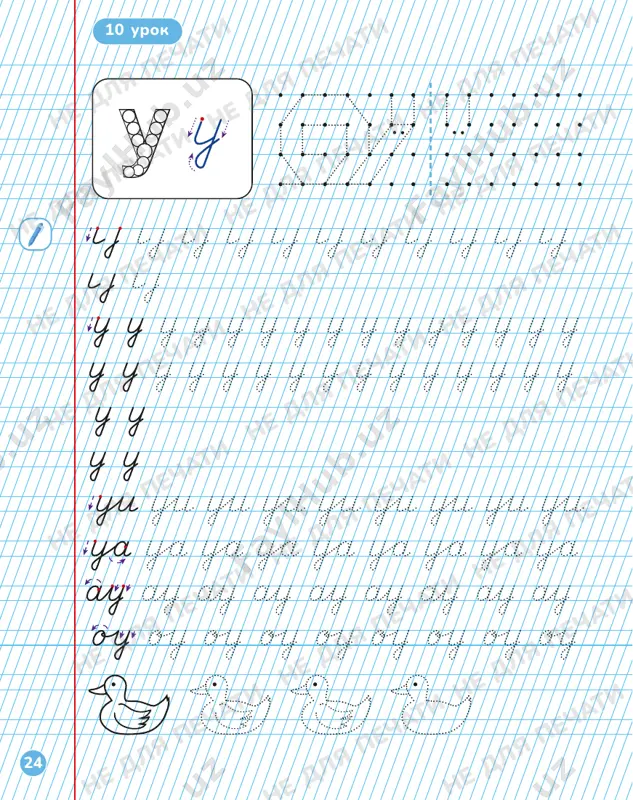 10 урок
У у
у у у у у у у у у у у у у у у
у у у у у у у у у у у у у у у
у у
у у
уи уи уи уи уи уи уи уи уи
уа уа уа уа уа уа уа уа уа
ау ау ау ау ау ау ау ау ау
оу оу оу оу оу оу оу оу оу
24
НЕ ДЛЯ ПЕЧАТИ
FaylHub.uz